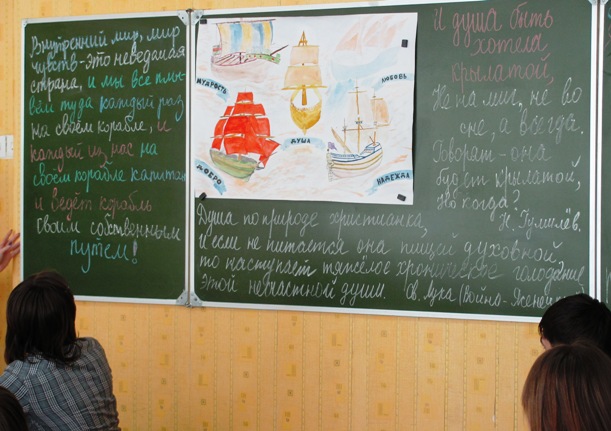 Внутренний мир, мир
чувств - это неведомая
страна, и мы все плы-
вём туда каждый раз
на своём корабле, и
каждый из нас на
своём корабле капитан
и ведёт корабль
своим собственным
путём!
МУДРОСТЬ
ЛЮБОВЬ
ДУША
ДОБРО
НАДЕЖДА
И душа быть
хотела
крылатой,
Не на миг, не во
сне, всегда.
Говорят - она
будет крылатой,
Но когда?
Н. Гумилёв.
Душа по природе христианка,
и если не питается она пищей духовной,
то наступает тяжёлое хроническое голодание
этой несчастной души. Св. Лука (Война-Ясенец